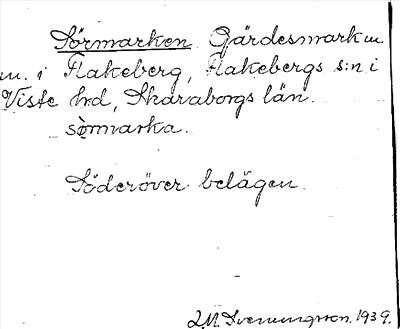 Sörmarken Gärdesmark m.
m. i Flakeberg, Flakebergs s:n i
Viste hd, Skaraborgs län.
sörmarka.
Söderöver belägen.
Sveningsson. 1939.